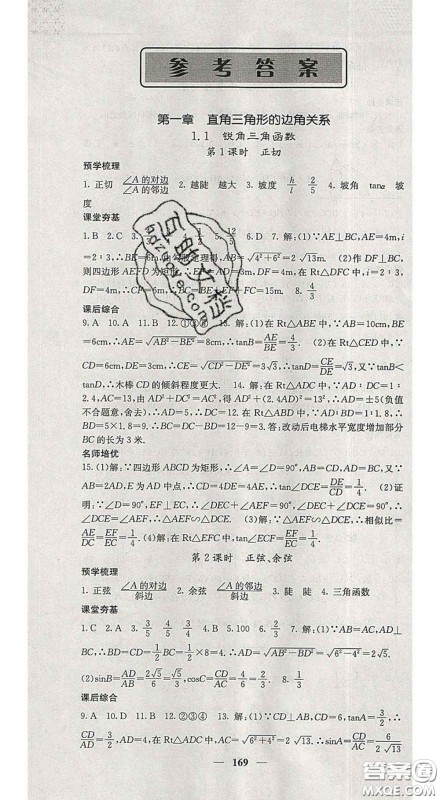 参考答案
第一章 直角三角形的边角关系
1.1 锐角三角函数
第1课时 正切
预学梳理
1. 正切 ∠A的对边/∠A的邻边 2. 越陡 越大 3. 坡度 h/l 2/5 4. 坡角 tanα 坡
度
课堂夯基
1. B 2. C 3. 12/5 6. D 7. 解:(1)∵AE⊥BC,AE=4m,i
=2∶3,∴BE=6m,由勾股定理得,AB=√(4²+6²)=2√13m. (2)作DF⊥BC,
则四边形AEFD为矩形,∴EF=AD=4m,在Rt△DFC中,i=2∶3,
DF=4m,∴CF=6m,∴BC=BE+EF+FC=15m. 8. 4/3
课后综合
9. A 10. A 11. B 12. ①③ 13. 解:(1)∵在Rt△ABE中,∵AB=10cm,BE
=6cm,∴AE=√(AB²−BE²)=8cm,∴tanB=AE/BE=4/3. (2)在Rt△CED中,∵
CD=6cm,DE=3cm,∴CE=√(CD²−DE²)=3√3,∴tanD=CE/DE=√3,又∵tanB<
tanD,∴木棒CD的倾斜程度更大. 14. 解:在Rt△ADC中,∵AD∶DC=1∶
2.4,AC=13,由AD²+DC²=AC²,得AD²+(2.4AD)²=13²,∴AD=±5(负值
不合题意,舍去),∴DC=12. 在Rt△ABD中,∵AD∶BD=1∶1.8,∴
BD=5×1.8=9.∴BC=DC−BD=12−9=3.答:改动后电梯水平宽度增加部分
BC的长为3米.
名师培优
15. (1)解:∵四边形ABCD为矩形,∴∠A=∠D=90°,AB=CD,又∵AB
=AD=2AD,E为AD中点,∴CD=4DE,在Rt△CDE中,tan∠DCE=DE/CD=1/4. (2)证
明:∵∠D=90°,EF⊥EC,∴∠DEC+∠AEF=90°,∠DEC+∠DCE=90°,∴∠AEF
=∠DCE,∴△AEF∽△DCE. (3)解:∵△AEF∽△DCE,∴相似比=
AE/DC=EF/EC=1/4. (4)解:在Rt△EFC中,tan∠ECF=EF/EC=1/4.
第2课时 正弦、余弦
预学梳理
1. 正弦 ∠A的对边/斜边 2. 余弦 ∠A的邻边/斜边 3. 陡 陡 4. 三角函数
课堂夯基
1. C 2. A 3. 3/5 4/5 3/4 4. B 5. 100 6. 2/3 7. B 8. 解:(1)∵AB=AC,AD⊥
BC,∴BD=CD=1/2BC=1/2×8=4. ∴AD=√(AB²−BD²)=√(6²−4²)=2√5.
(2)sinB=AD/AB=2√5/6=√5/3,cosC=CD/AC=4/6=2/3.
课后综合
9. A 10. D 11. B 12. ②③④ 13. 解:(1)∵在Rt△ACD中,CD=6,tanA=3/2,∴
CD/AD=3/2,∴AD=4,在Rt△ACD中,AC=√(6²+4²)=2√13. ∴sinA=CD/AC=6/(2√13)
169
百时文档
答案圈
MXQE.COM